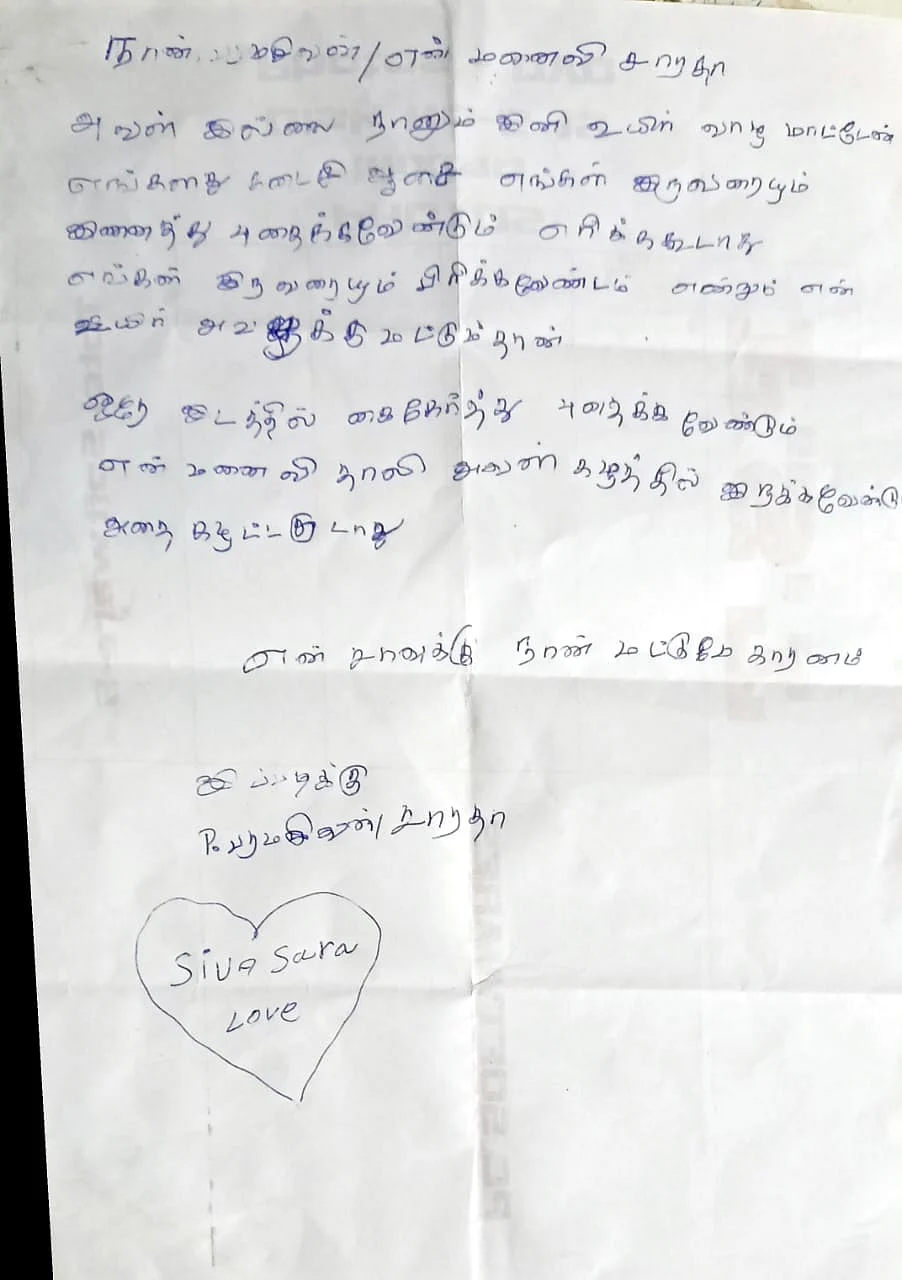 நான் / என் மனைவி சாரதா
அவள் இல்லை நானும் இனி உயிர் வாழ மாட்டேன்
எங்களது கடைசி ஆசை எங்கள் இருவரையும்
இணைத்து புதைக்கவேண்டும் எரிக்ககூடாது
எங்கள் இருவரையும் பிரிக்கவேண்டம் என்றும் என்
உயிர் அவளுக்கு மட்டும்தான்
ஒரே இடத்தில் கைகோர்த்து புதைக்க வேண்டும்
என் மனைவி தாலி அவள் கழுத்தில் இருக்கவேண்டு
அதை கழட்டகுடாது
என் சாவுக்கு நான் மட்டுமே காரணம்
இப்படிக்கு
P. பரமசிவன்/சாரதா
Siva Sara
Love